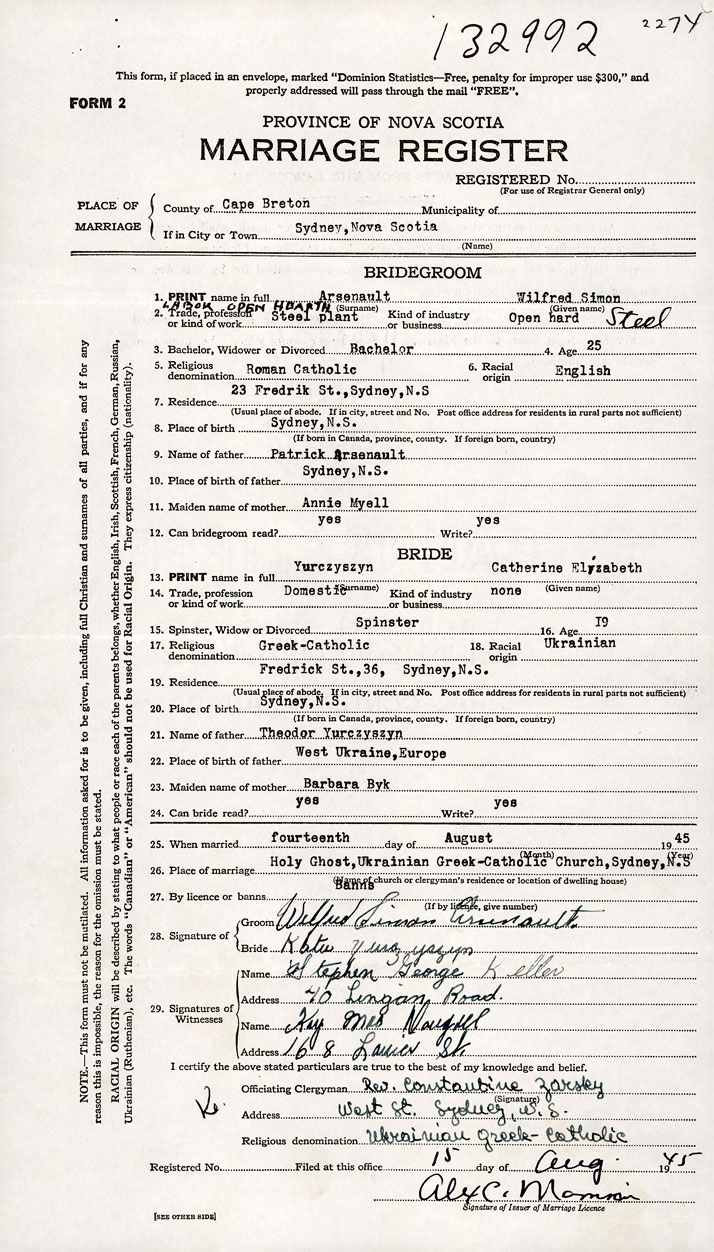 132992
2274
This form, if placed in an envelope, marked "Dominion Statistics—Free, penalty for improper use $300," and
properly addressed will pass through the mail "FREE".
FORM 2
PROVINCE OF NOVA SCOTIA
MARRIAGE REGISTER
REGISTERED No.
(For use of Registrar General only)
PLACE OF MARRIAGE
County of Cape Breton Municipality of
If in City or Town Sydney,Nova Scotia
(Name)
BRIDEGROOM
1. PRINT name in full Arsenault Wilfred Simon
(Surname) (Given name)
LABOR OPEN HEARTH
2. Trade, profession or kind of work Steel plant Kind of industry or business Open hard Steel
3. Bachelor, Widower or Divorced Bachelor 4. Age 25
5. Religious denomination Roman Catholic 6. Racial origin English
7. Residence 23 Fredrik St.,Sydney,N.S
(Usual place of abode. If in city, street and No. Post office address for residents in rural parts not sufficient)
8. Place of birth Sydney,N.S.
(If born in Canada, province, county. If foreign born, country)
9. Name of father Patrick Arsenault
10. Place of birth of father Sydney,N.S.
11. Maiden name of mother Annie Myell
12. Can bridegroom read? yes Write? yes
BRIDE
13. PRINT name in full Yurczyszyn Catherine Elizabeth
(Surname) (Given name)
14. Trade, profession or kind of work Domestic Kind of industry or business none
15. Spinster, Widow or Divorced Spinster 16. Age I9
17. Religious denomination Greek-Catholic 18. Racial origin Ukrainian
19. Residence Fredrick St.,36, Sydney,N.S.
(Usual place of abode. If in city, street and No. Post office address for residents in rural parts not sufficient)
20. Place of birth Sydney,N.S.
(If born in Canada, province, county. If foreign born, country)
21. Name of father Theodor Yurczyszyn
22. Place of birth of father West Ukraine,Europe
23. Maiden name of mother Barbara Byk
24. Can bride read? yes Write? yes
25. When married fourteenth day of August 1945
(Month) (Year)
26. Place of marriage Holy Ghost,Ukrainian Greek-Catholic Church,Sydney,N.S
(Name of church or clergyman's residence or location of dwelling house)
27. By licence or banns Banns
(If by licence, give number)
28. Signature of
Groom Wilfred Simon Arsenault.
Bride Katie Yurczyszyn
29. Signatures of Witnesses
Name Stephen George Keller
Address 70 Lingan Road.
Name Kay Mae
Address 168 Lanier St.
I certify the above stated particulars are true to the best of my knowledge and belief.
Officiating Clergyman Rev. Constantine Zarsky
(Signature)
Address West St. Sydney, N.S.
Religious denomination Ukrainian Greek-Catholic
Registered No. Filed at this office 15 day of Aug. 1945
Alex C.
Signature of Issuer of Marriage Licence
[SEE OTHER SIDE]
NOTE.—This form must not be mutilated. All information asked for is to be given, including full Christian and surnames of all parties, and if for any
reason this is impossible, the reason for the omission must be stated.
RACIAL ORIGIN will be described by stating to what people or race each of the parents belongs, whether English, Irish, Scottish, French, German, Russian,
Ukrainian (Ruthenian), etc. The words "Canadian" or "American" should not be used for Racial Origin. They express citizenship (nationality).